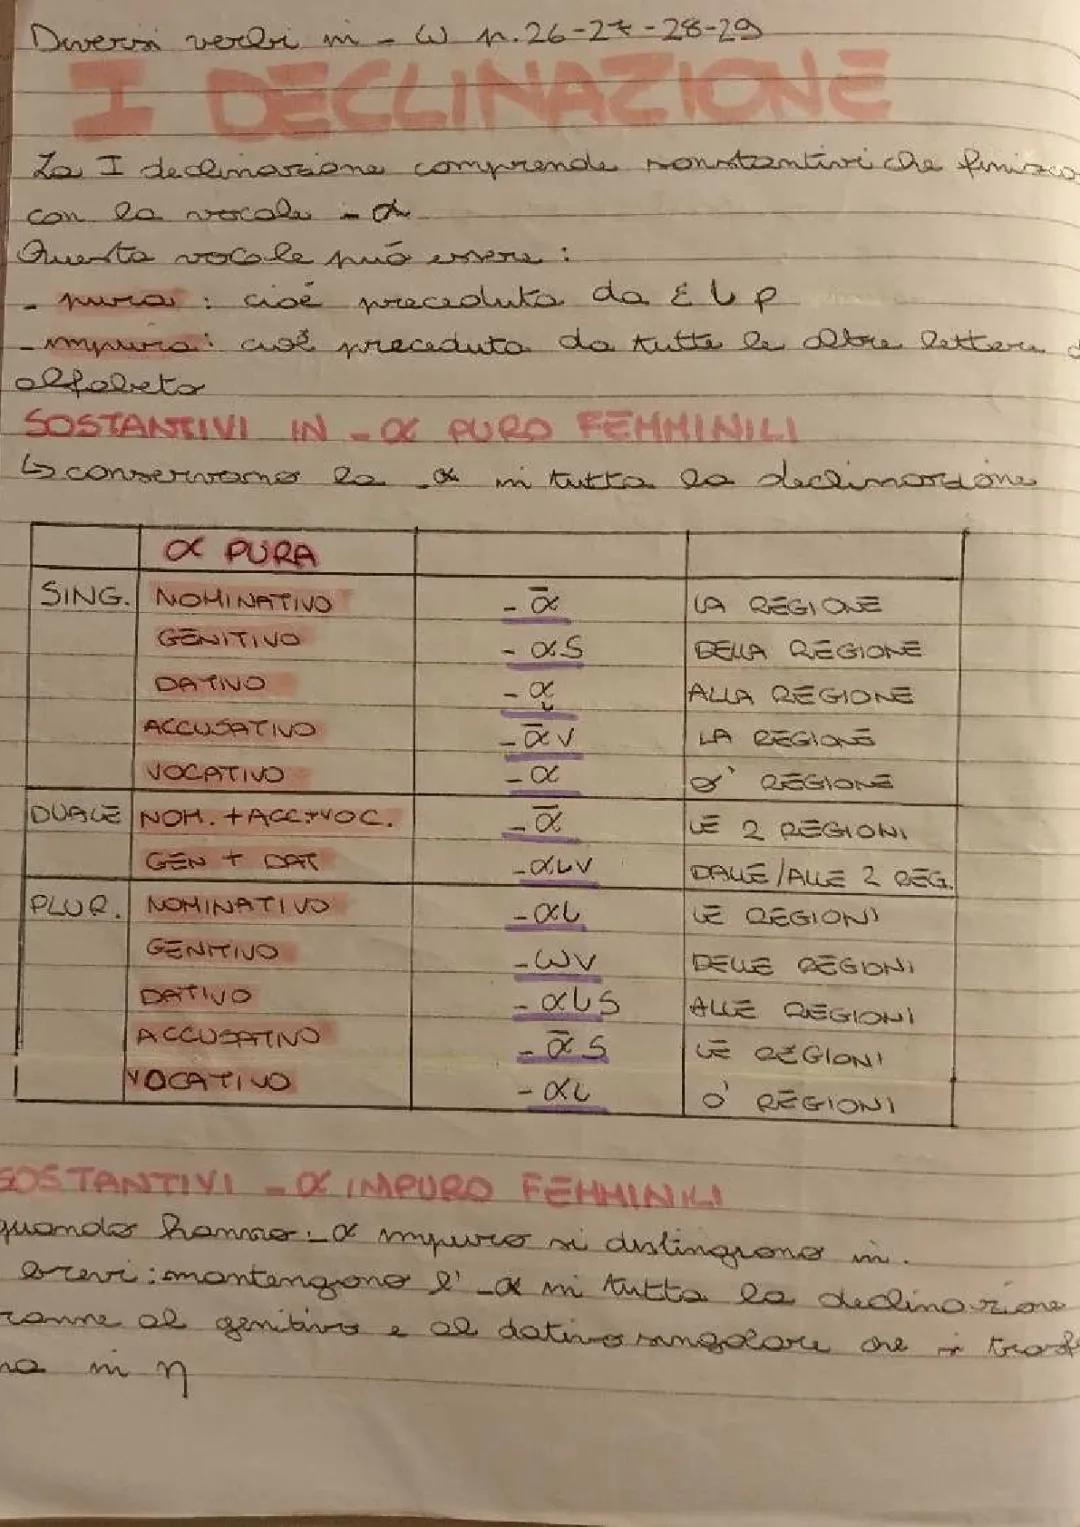 Diversi verbi in - ω p. 26-27-28-29
I DECLINAZIONE
La I declinazione comprende sonstantivi che finisco
con la vocale - α
Questa vocale può essere:
- pura: cioè preceduta da ε ι ρ
- impura: cioè preceduta da tutte le altre lettere d
alfabeto
SOSTANTIVI IN - α PURO FEMMINILI
↳ conservano la -α in tutta la declinazione
α PURA
SING. NOMINATIVO -ᾱ LA REGIONE
GENITIVO -αS DELLA REGIONE
DATIVO -ᾳ ALLA REGIONE
ACCUSATIVO -ᾱν LA REGIONE
VOCATIVO -α O' REGIONE
DUALE NOM. + ACC + VOC. -ᾱ LE 2 REGIONI
GEN + DAT -αιν DALLE/ALLE 2 REG.
PLUR. NOMINATIVO -αι LE REGIONI
GENITIVO -ων DELLE REGIONI
DATIVO -αιS ALLE REGIONI
ACCUSATIVO -ᾱS LE REGIONI
VOCATIVO -αι O' REGIONI
SOSTANTIVI - α IMPURO FEMMINILI
quando hanno -α impuro si distinguono in.
brevi: mantengono l' -α in tutta la declinazione
ranne al genitivo e al dativo singolare che si trasf
na in η